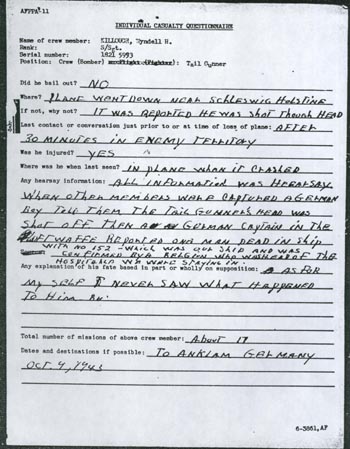 AFPPA-11
INDIVIDUAL CASUALTY QUESTIONNAIRE
Name of crew member: KILLOUGH, Tyndell H.
Rank: S/Sgt.
Serial number: 1821 5993
Position: Crew (Bomber) Tail Gunner
Did he bail out? NO
Where? PLANE WENT DOWN NEAR SCHLESWIG HOLSTINE
If not, why not? IT WAS REPORTED HE WAS SHOT THOUGH HEAD
Last contact or conversation just prior to or at time of loss of plane: AFTER
30 MINUTES IN ENEMY TERRITORY
Was he injured? YES
Where was he when last seen? IN PLANE WHEN IT CRASHED
Any hearsay information: ALL INFORMATION WAS HEARSAY
WHEN OTHER MEMBERS WERE CAPTURED A GERMAN
BOY TOLD THEM THE TAIL GUNNER'S HEAD WAS
SHOT OFF THEN GERMAN CAPTAIN IN THE
LUFTWAFFE REPORTED ONE MAN DEAD IN SHIP
WITH NO 152 - WHICH WAS OUR SHIP AND WAS
CONFIRMED BY A BELGIEN WHO WAS HEAD OF THE
HOSPITABLE WE WERE STAYING IN.
Any explanation of his fate based in part or wholly on supposition: AS FOR
MY SELF I NEVER SAW WHAT HAPPENED
TO HIM
Total number of missions of above crew member: About 17
Dates and destinations if possible: TO ANKLAM GERMANY
OCT. 9, 1943
6-3861,AF